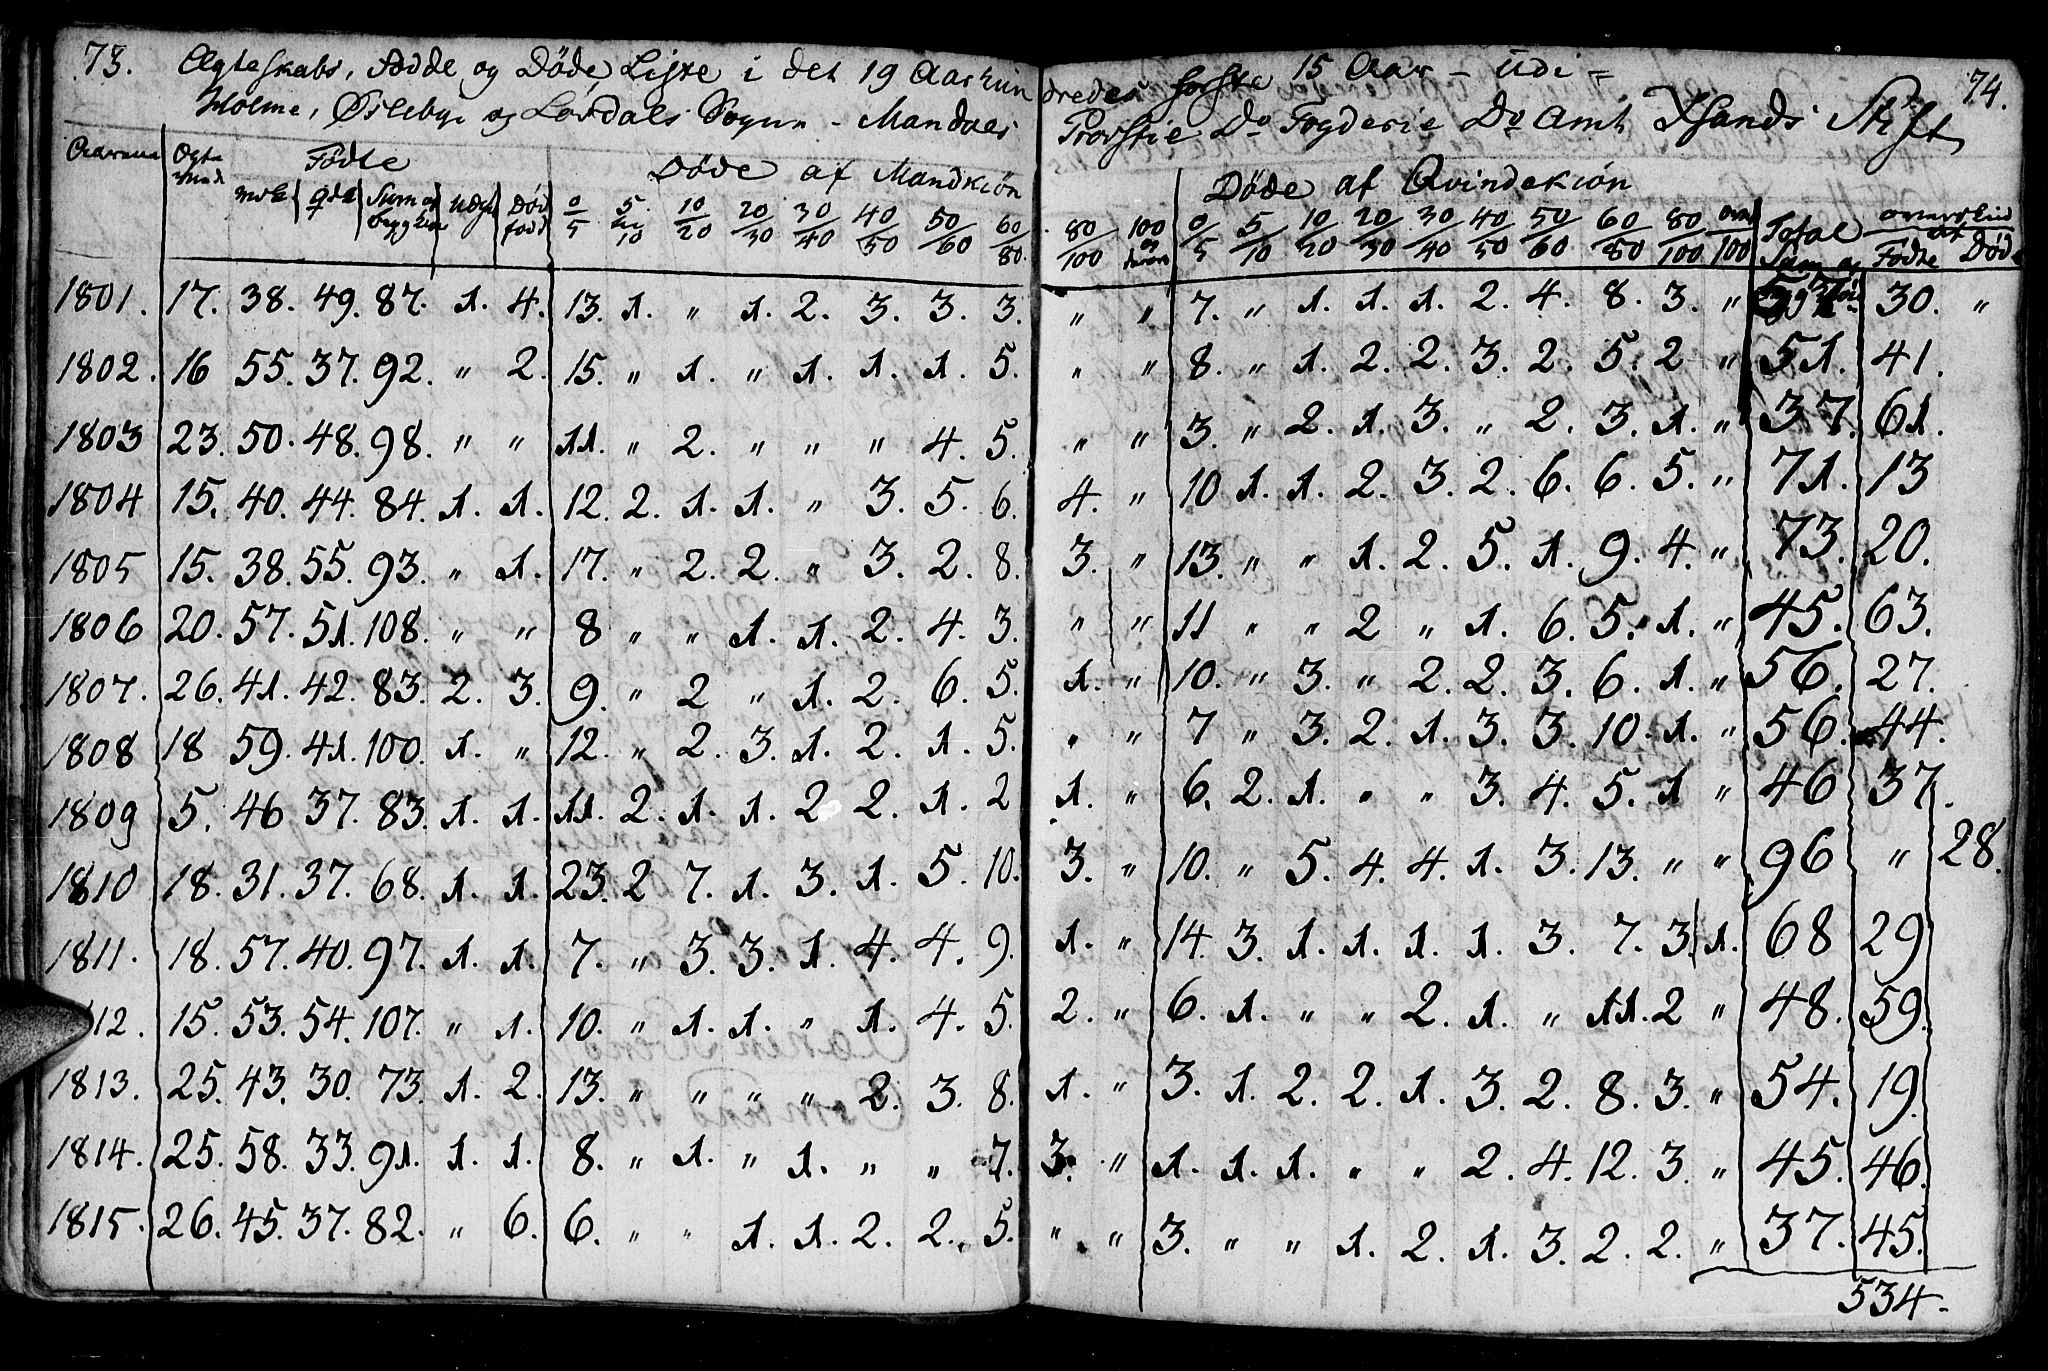 73. Ægteskabs, Födde og Döde Liste i det 19 Aarhun dredes første 15 Aar – udi = 74.
Holme, Øslebye og Løvdals Sogne – Mandals Provstie Do Fogderie Do Amt Xsands Stift
Aarene Ægte Födte Döde af Mandkiön Döde af Qvindekiön Total overskud af
mk qk Sum Död födt 0/5 5/10 10/20 20/30 30/40 40/50 50/60 60/80. 80/100 100 0/5 5/10 10/20 20/30 30/40 40/50 50/60 60/80 80/100 over 100 Födte Döde
1801. 17. 38. 49. 87. 1. 4. 13. 1. " 1. 2. 3. 3. 3. " " 7. " 1. 1. 1. 2. 4. 8. 3. " 30. "
1802. 16 55. 37. 92. " 2. 15. " 1. " 1. 1. 1. 5. " " 8. " 1. 2. 2. 3. 2. 5. 2 " 51. 41.
1803 23. 50. 48. 98. " " 11. " 2. " " " 4. 5. " " 3. " 2. 1. 3. " 2. 3. 1. " 37. 61.
1804 15. 40. 44. 84. 1. 1. 12. 2. 1. 1. " 3. 5. 6. 4. " 10 1. 1. 2. 3. 2. 6. 6. 5. " 71. 13
1805 15. 38. 55. 93. " 1. 17. " 2. 2. " 3. 2. 8. 3. " 13. " " 1. 2. 5. 1. 9. 4. " 73. 20.
1806 20. 57. 51. 108. " " 8 " " 1. 1. 2. 4. 3. " " 11 " " 2 " 1. 6. 5. 1. " 45. 63.
1807. 26. 41. 42. 83. 2. 3. 9. " 2 " 1. 2. 6. 5. 1. " 10. " 3. " 2. 2. 3. 6. 1. " 56. 27.
1808 18 59. 41. 100. 1. " 12. " 2. 3. 1. 2. 1. 5. " " 7 " 3. 2. 1. 3. 3. 10. 1. " 56. 44.
1809 5. 46 37. 83. 1. 1. 11. 2. 1. 1. 2 2. 1. 2 1. " 6. 2. 1. " " 3. 4. 5. 1 " 46 37.
1810 18. 31. 37. 68. 1. 1. 23. 2 7. 1. 3. 1. 5. 10. 3. " 10. " 5. 4. 4. 1. 3. 13. " " 96 " 28.
1811. 18. 57. 40. 97. 1. 1. 7. " 3. 3. 1. 4. 4. 9. 1. " 14. 3. 1. 1. 1. 1. 3. 7. 3. 1. 68 29
112. 15. 53. 54. 107. " 1. 10. " 1. 1. " 1. 4. 5. 2. " 6. 1. " " 2. 1. " 11. 2 " 48. 59.
1813. 25. 43. 30. 73. 1. 2. 13. " " " " 2. 3. 8. 1. " 3. 1. 2. 2. 1. 3. 2. 8. 3. " 54. 19.
1814. 25. 58. 33. 91. 1. 1. 8. " 1. " 1. " " 7. 3. " 1. 1. 1. " " 2. 4. 12. 3. " 45. 46.
1815. 26. 45. 37. 82. " 6. 6. " " 1. 1. 2. 2. 5. " " 3. " " 1. 2. 1. 3. 2. 2. " 37. 45.
534.